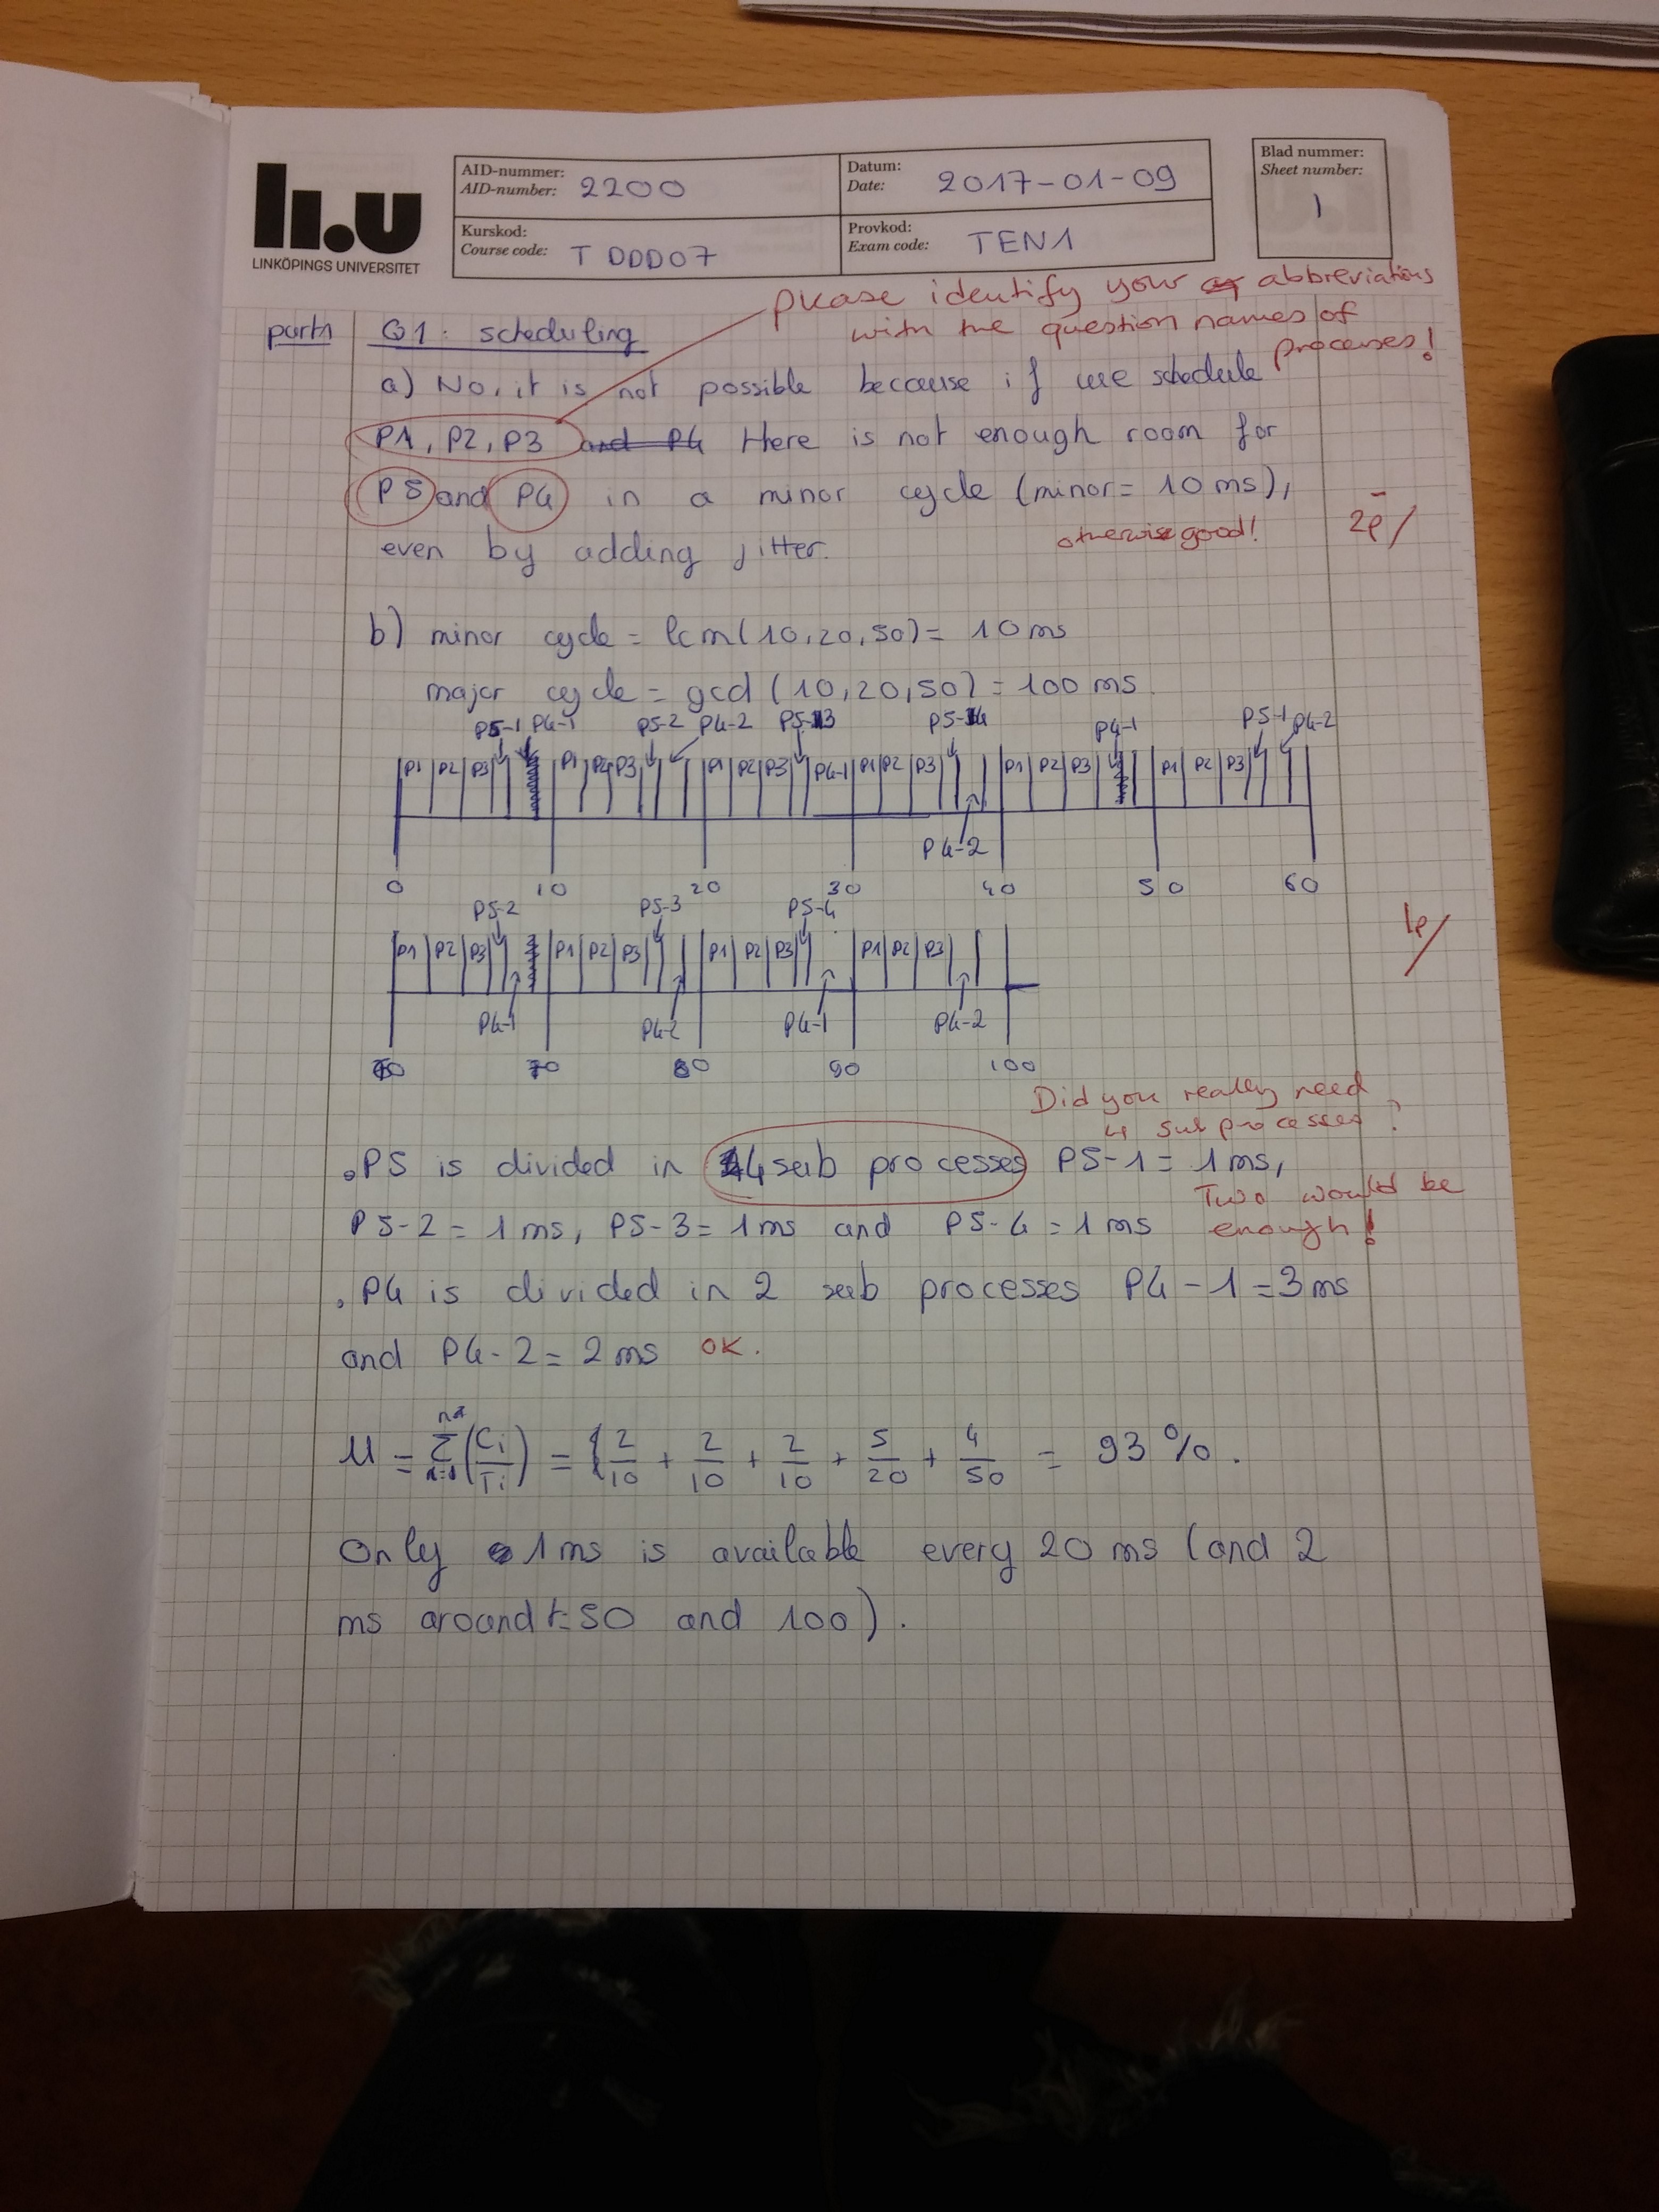 li.u
LINKÖPINGS UNIVERSITET
AID-nummer:
AID-number: 2200
Datum:
Date: 2017-01-09
Kurskod:
Course code: TDDD07
Provkod:
Exam code: TEN1
Blad nummer:
Sheet number:
1
please identify your abbreviations
with the question names of
processes!
part1 Q1: scheduling
a) No, it is not possible because if we schedule
P1, P2, P3 and P4 there is not enough room for
P5 and P4 in a minor cycle (minor = 10 ms),
even by adding jitter.
otherwise good!
2p/
b) minor cycle = lcm(10,20,50) = 10 ms
major cycle = gcd (10,20,50) = 100 ms
P5-1 P4-1 P5-2 P4-2 P5-3 P5-4 P4-1 P5-1 P4-2
P1 P2 P3 P1 P2 P3 P1 P2 P3 P4-1 P1 P2 P3 P1 P2 P3 P1 P2 P3
P4-2
0 10 20 30 40 50 60
P5-2 P5-3 P5-4
P1 P2 P3 P1 P2 P3 P1 P2 P3 P1 P2 P3
P4-1 P4-2 P4-1 P4-2
60 70 80 90 100
Did you really need
4 sub processes?
.P5 is divided in 4 sub processes P5-1 = 1ms,
Two would be
enough!
P5-2 = 1ms, P5-3 = 1ms and P5-4 = 1ms
.P4 is divided in 2 sub processes P4-1 = 3ms
and P4-2 = 2ms OK.
U = Σ(Ci/Ti) = (2/10 + 2/10 + 2/10 + 5/20 + 4/50 = 93%.
Only 1ms is available every 20 ms (and 2
ms around t=50 and 100).